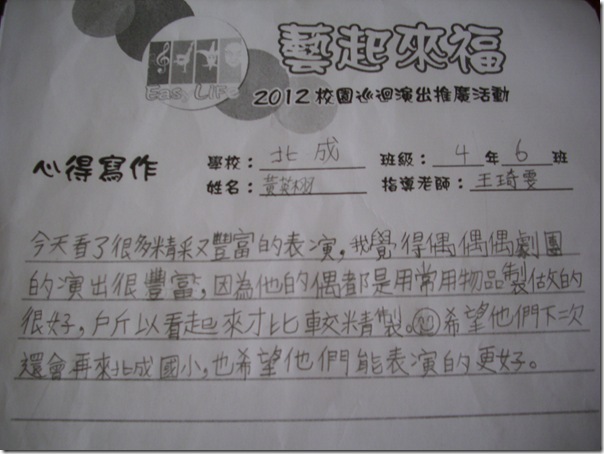 Easy Life
藝起來福
2012校園巡迴演出推廣活動
心得寫作
學校：北成 班級：4年6班
姓名：黃英栩 指導老師：王琦雯
今天看了很多精采又豐富的表演，我覺得偶偶偶劇團
的演出很豐富，因為他的偶都是用常用物品製做的
很好，所以看起來才比較精製。希望他們下次
還會再來北成國小，也希望他們能表演的更好。